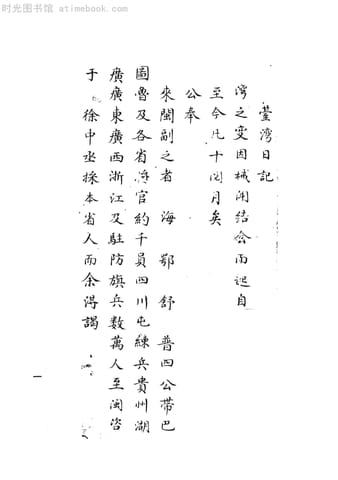 时光图书馆 - atimebook.com
臺湾日記
湾之变因械闘结会而起自
至今凡十閲月矣
公奉
来閩副之者 海 鄂 舒 普四公带巴
圖魯及各省将官約千員四川屯練兵貴州湖
廣廣東廣西浙江及駐防旗兵數萬人至閩咨
于 徐中丞採本省人而余得謁
一